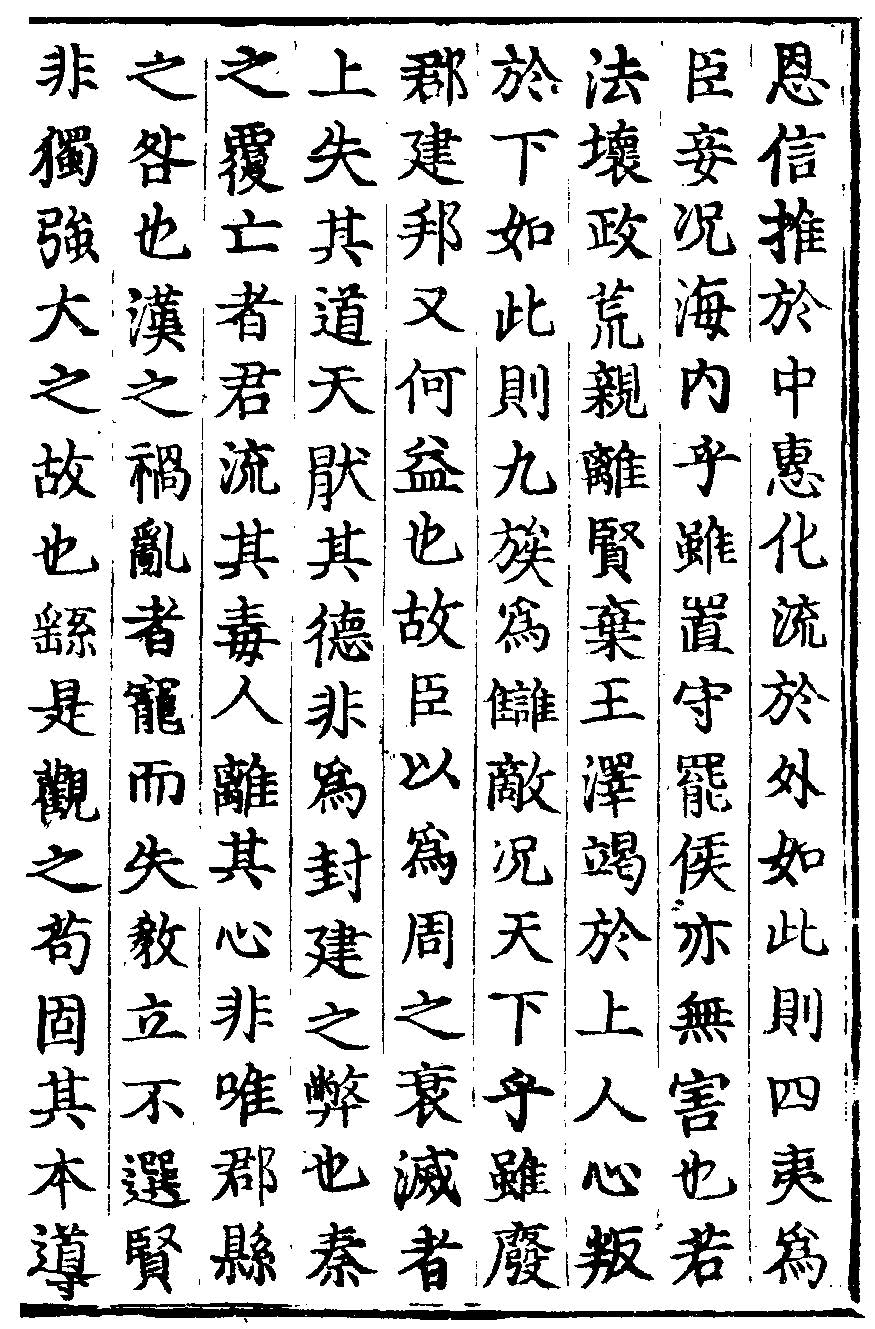 恩信推於中惠化流於外如此則四夷為
臣妾况海内乎雖置守罷侯亦無害也若
法壞政荒親離賢棄王澤竭於上人心叛
於下如此則九族為讎敵况天下乎雖廢
郡建邦又何益也故臣以為周之衰滅者
上失其道天厭其德非為封建之弊也秦
之覆亡者君流其毒人離其心非唯郡縣
之咎也漢之禍亂者寵而失教立不選賢
非獨強大之故也繇是觀之苟固其本導